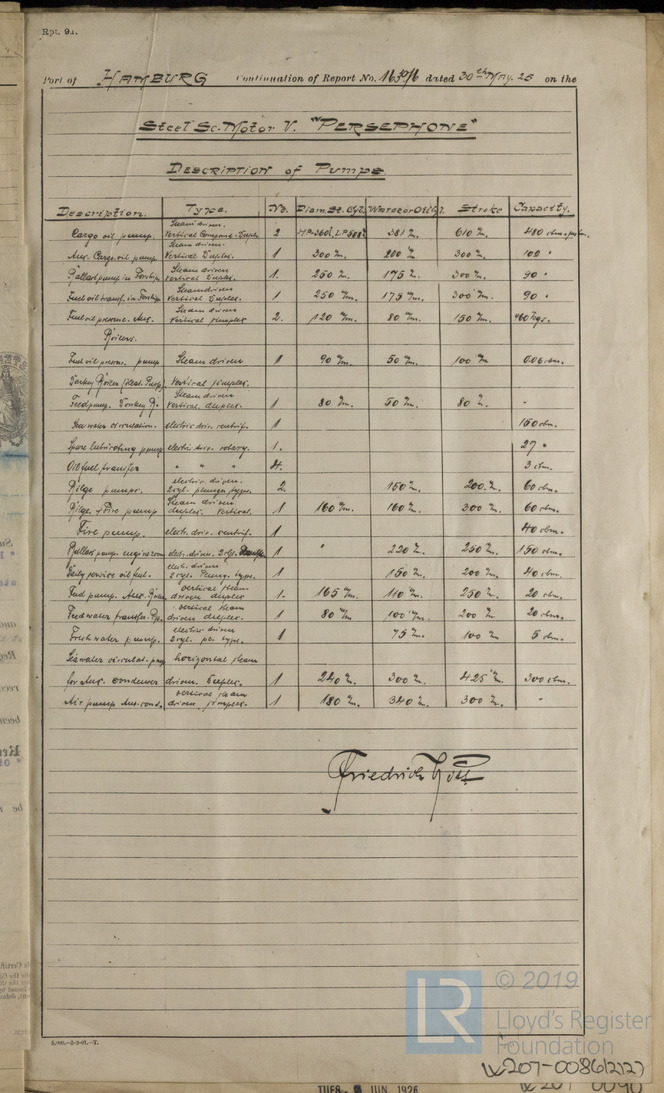 Rpt. 9A.
Port of HAMBURG Continuation of Report No. 16596 dated 30th May. 25 on the
Steel Sc. Motor V. "PERSEPHONE"
DESCRIPTION of PUMPS
Description. Type. No. Diam. St. Cyl. Water or Oil Cyl. Stroke Capacity.
Cargo oil pump. Steam driven Vertical Compound Duplex 2 381 610
Aux. Cargo oil pump Steam driven Vertical Duplex. 1 300 200 300 100 "
Ballast pump in Forship Steam driven Vertical Duplex. 1. 250 175 300 90 "
Fuel oil transf. in Forship Steam driven Vertical Duplex. 1 250 175 300 90 "
Fuel oil pressure Aux. Steam driven Vertical simplex 2. 120 80 150
Boilers.
Fuel oil press. pump Steam driven 1 90 50 100 0.06 cbm.
Donkey Boiler Vertical simplex.
Feed pump. Donkey B. Steam driven Vertical duplex. 1 80 50 80 -
Sea water circulation. electric driv. centrif. 1 150 cbm.
Spare lubricating pump electr. driv. rotary. 1. 27 "
Oil fuel transfer " " " 4. 3 cbm.
Bilge pumps. electric driven. 2 cyl. plunger type. 2. 150 200 60 cbm.
Bilge + Fire pump Steam driven duplex. vertical. 1 160 160 300 60 cbm.
Fire pump. electr. driv. centrif. 1 40 cbm.
Ballast pump. engine room electr. driven. 2 cyl. 1 " 220 250 150 cbm.
Daily service oil fuel. electr. driven 2 cyl. Plung. type. 1 150 200 40 cbm.
Feed pump. Aux. Boiler vertical steam driven duplex 1. 165 110 250 20 cbm.
Feedwater transfer vertical steam driven duplex. 1 80 100 200 20 cbm.
Fresh water pump. electric driven 2 cyl. type. 1 75 100 5 cbm.
Seawater circulat. pump horizontal steam
for Aux. condenser driven. Duplex. 1 240 300 425 300 cbm.
Air pump Aux. cond. vertical steam driven, simplex. 1 180 340 300 -
Friedrich
© 2019
LR
Lloyd's Register
Foundation
W207-0086(2/2)
W207 0090
TUES. JUN. 1926